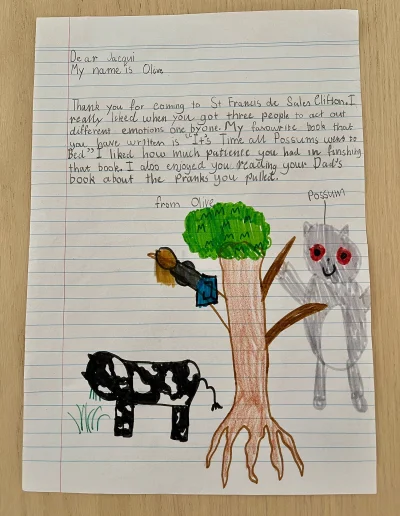 Dear Jacqui
My name is Olive
Thank you for coming to St Francis de Sales Clifton. I
really liked when you got three people to act out
different emotions one by one. My favourite book that
you have written is "It's Time All Possums Went to
Bed" I liked how much patience you had in finishing
that book. I also enjoyed you reading your Dad's
book about the Pranks you pulled.
from Olive
Possum